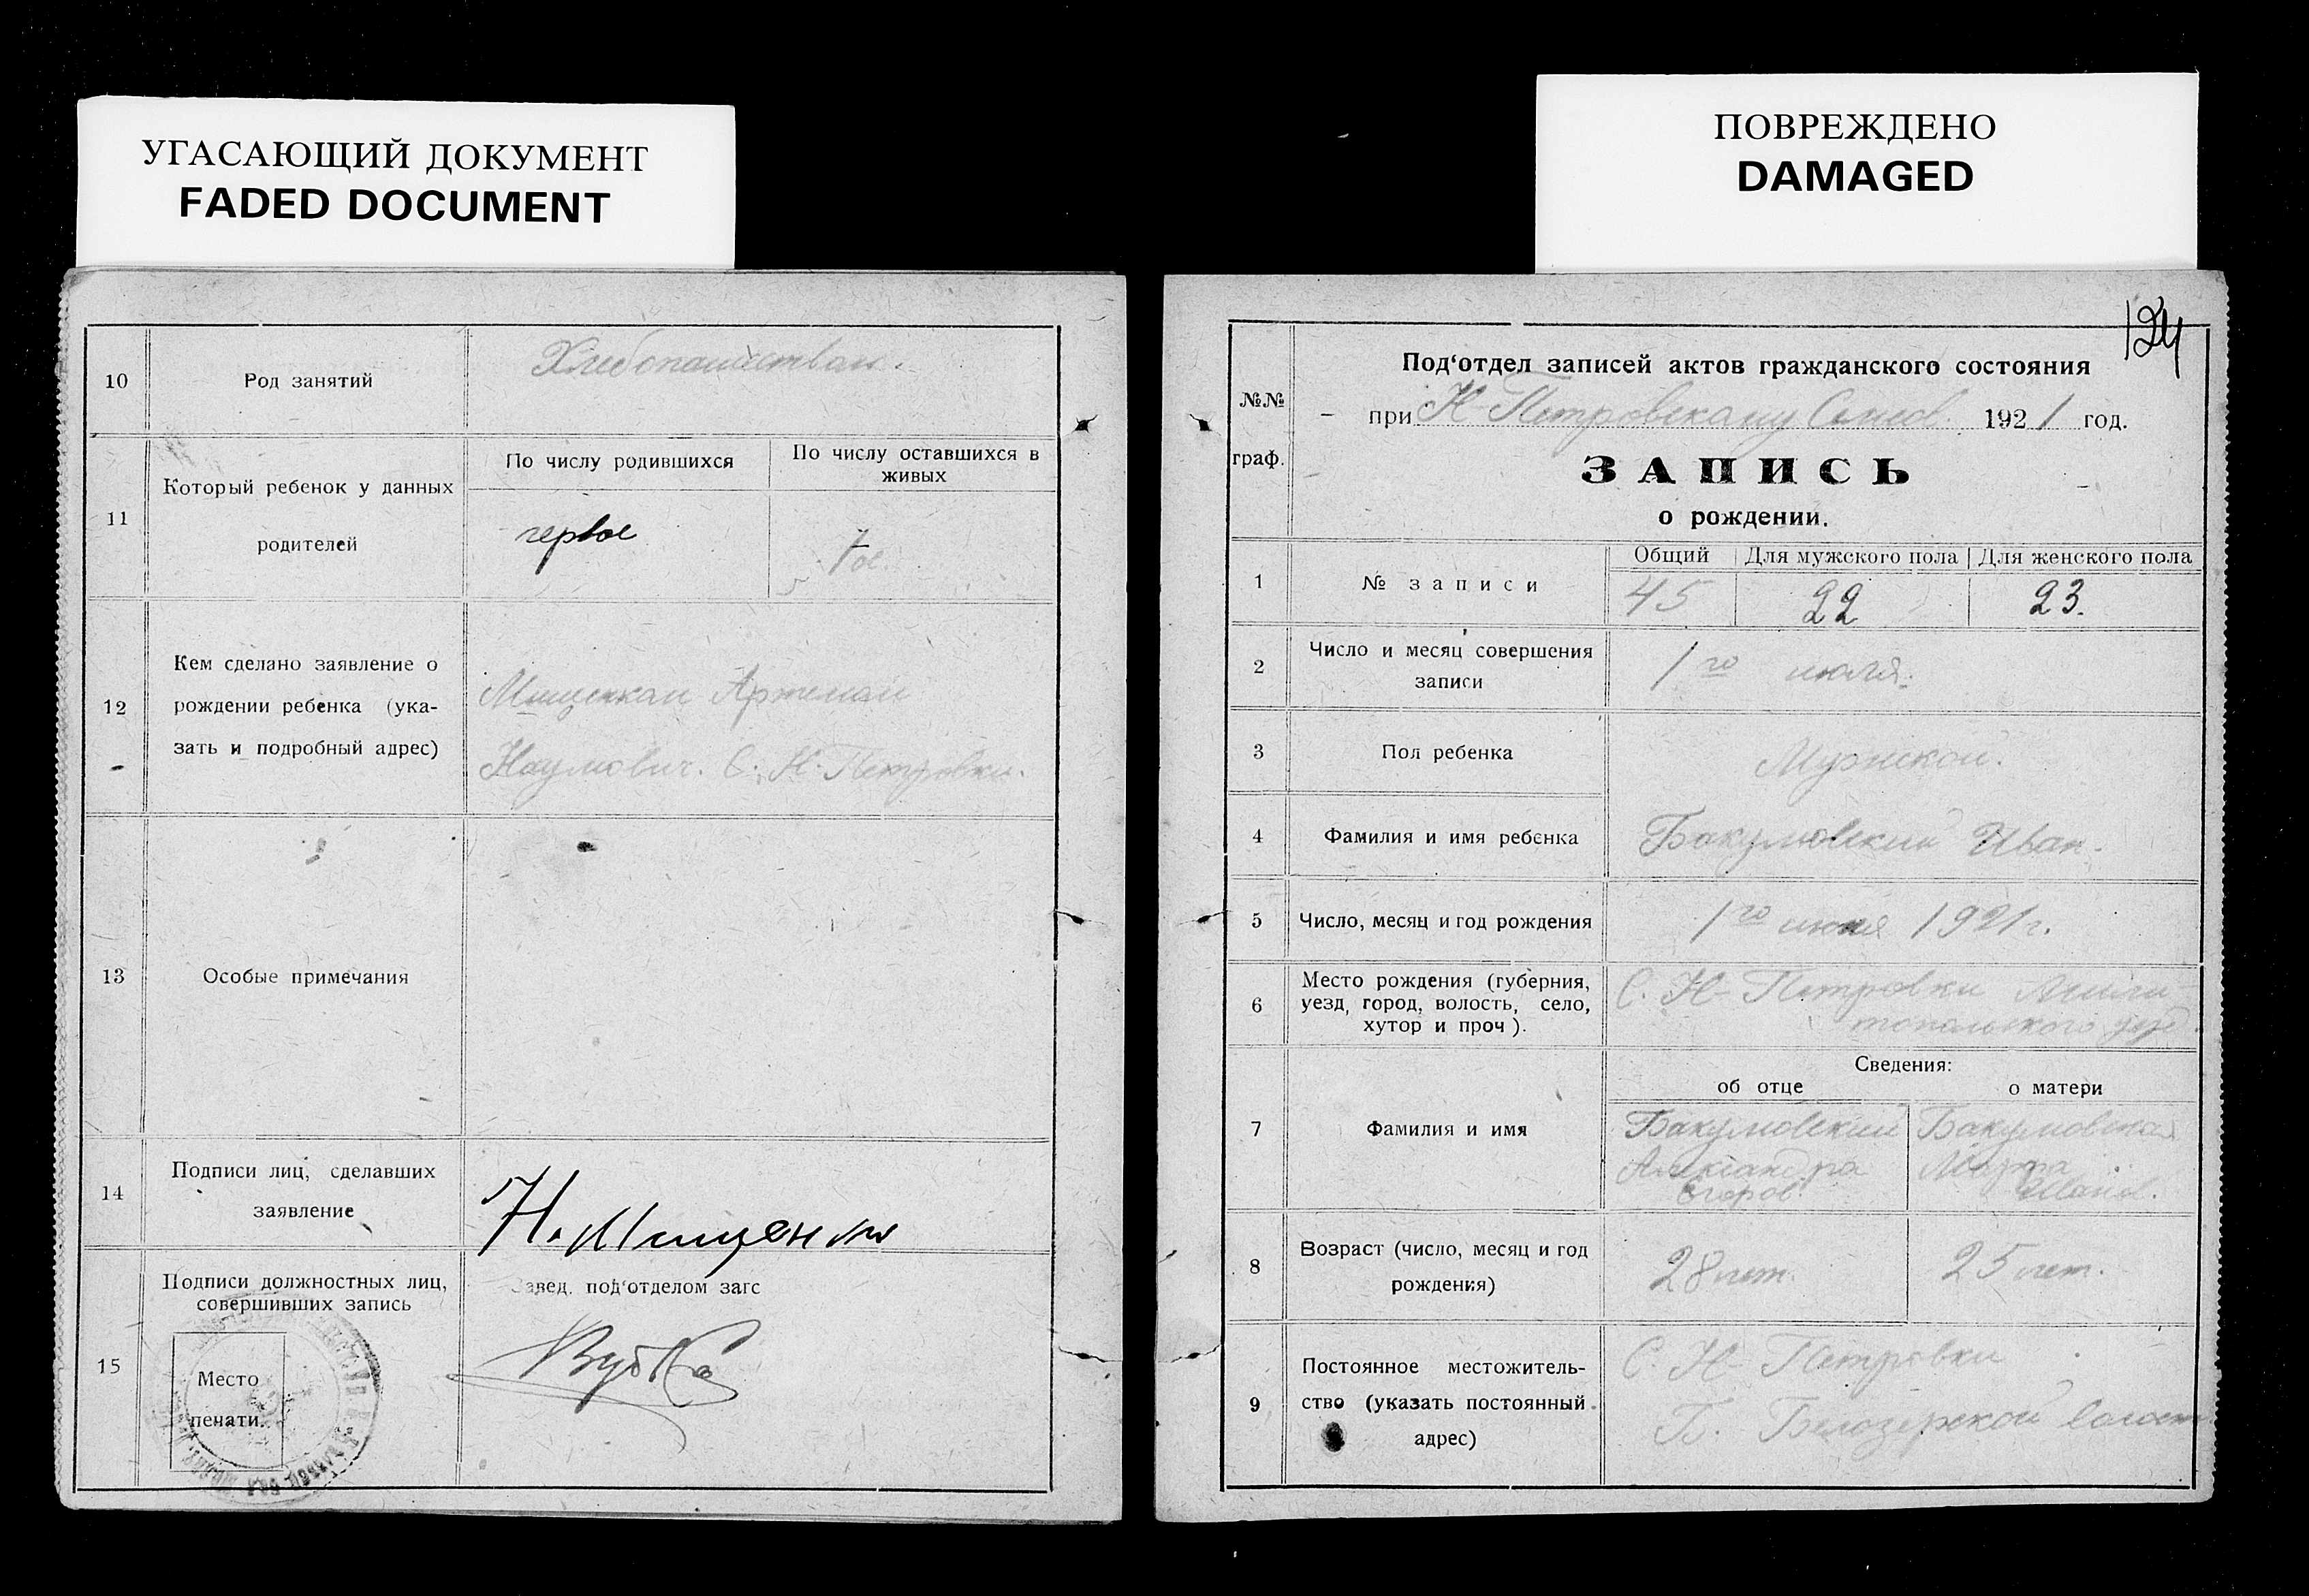 УГАСАЮЩИЙ ДОКУМЕНТ
FADED DOCUMENT
10
Род занятий
11
Который ребенок у данных
родителей
По числу родившихся
По числу оставшихся в
живых
первое
12
Кем сделано заявление о
рождении ребенка (ука-
зать и подробный адрес)
Мищенком Артемом
Наумович. С. Н. Петровки.
13
Особые примечания
14
Подписи лиц, сделавших
заявление
15
Подписи должностных лиц,
совершивших запись
Завед. под'отделом загс
Место
печати.
ПОВРЕЖДЕНО
DAMAGED
124
№№
граф.
Под'отдел записей актов гражданского состояния
при Н-Петровскому 1921 год.
ЗАПИСЬ
о рождении.
1
№ записи
Общий Для мужского пола Для женского пола
45 22 23.
2
Число и месяц совершения
записи
1го июля.
3
Пол ребенка
Мужской.
4
Фамилия и имя ребенка
Бакумовский Иван.
5
Число, месяц и год рождения
1го июня 1921 г.
6
Место рождения (губерния,
уезд, город, волость, село,
хутор и проч).
С. Н-Петровки Мели-
топольского уезд.
Сведения:
об отце
о матери
7
Фамилия и имя
Бакумовский
Александра
Егоров.
Бакумовская
Марфа
8
Возраст (число, месяц и год
рождения)
28 лет.
25 лет.
9
Постоянное местожитель-
ство (указать постоянный
адрес)
С. Н-Петровки
Б. Белозерской волости